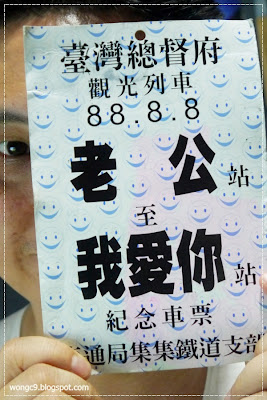 臺灣總督府
觀光列車
88.8.8
老公站
至
我愛你站
紀念車票
通局集集鐵道支部
wongc9.blogspot.com